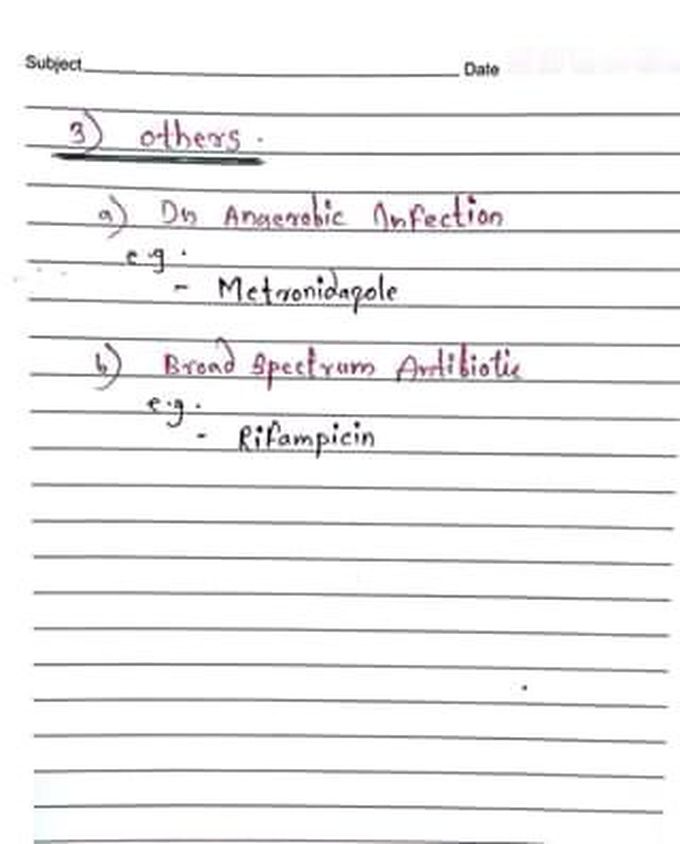 Subject Date
3) others.
a) In Anaerobic Infection
e.g.
- Metronidazole
b) Broad Spectrum Antibiotic
e.g.
- Rifampicin